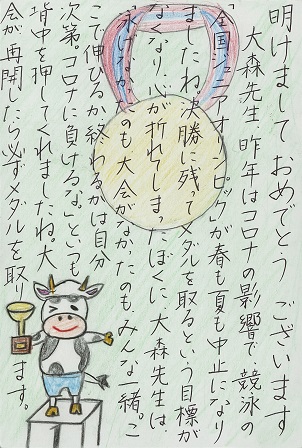 明けましておめでとうございます
大森先生、昨年はコロナの影響で競泳の
「全国ジュニアオリンピック」が春も夏も中止になり
ましたね。決勝に残ってメダルを取るという目標が
なくなり、心が折れてしまったぼくに、大森先生は、
「泳げなかったのも大会がなかったのもみんな一緒。こ
こで伸びるか終わるかは自分
次第。コロナに負けるな」といつも
背中を押してくれましたね。大
会が再開したら必ずメダルを取ります。